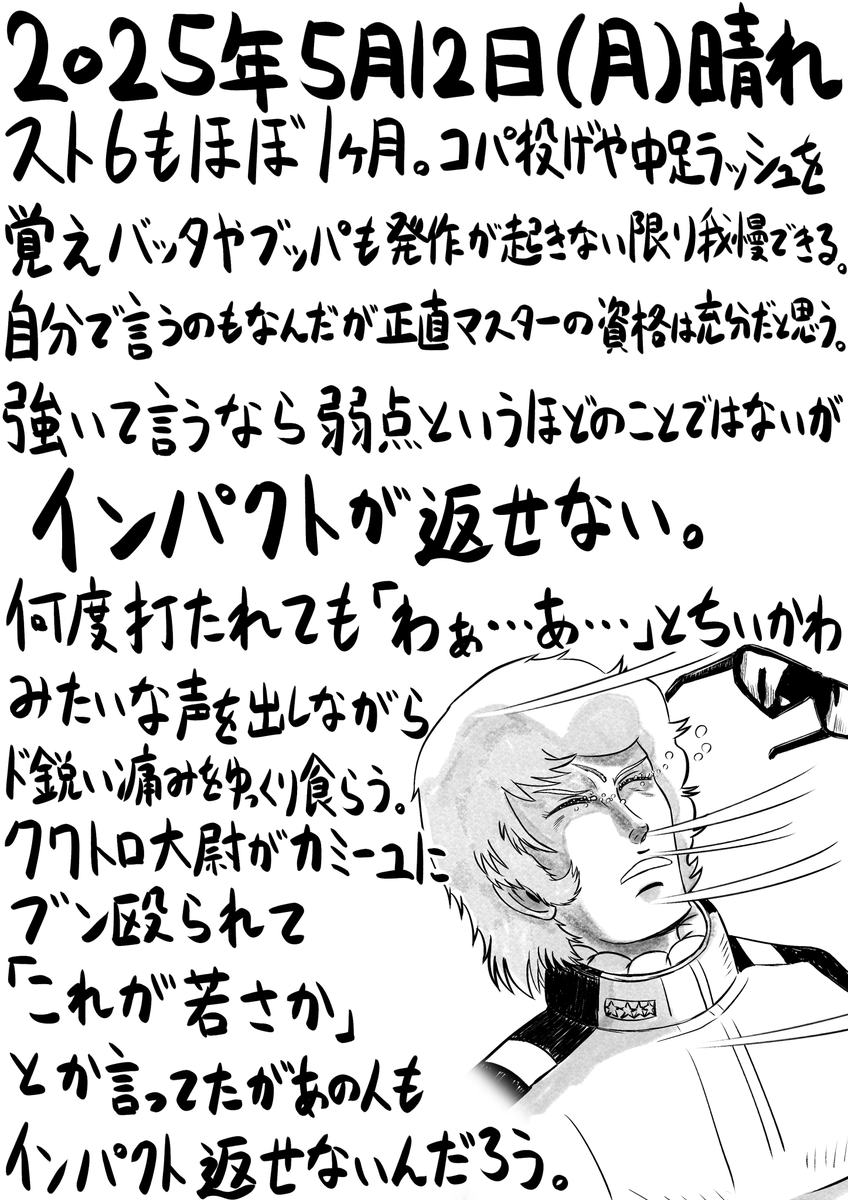 2025年5月12日(月)晴れ
スト6もほぼ1ヶ月。コパ投げや中足ラッシュを
覚えバッタやブッパも発作が起きない限り我慢できる。
自分で言うのもなんだが正直マスターの資格は充分だと思う。
強いて言うなら弱点というほどのことではないが
インパクトが返せない。
何度打たれても「わぁ…あ…」とちいかわ
みたいな声を出しながら
ド鋭い痛みをゆっくり食らう。
クワトロ大尉がカミーユに
ブン殴られて
「これが若さか」
とか言ってたがあの人も
インパクト返せないんだろう。